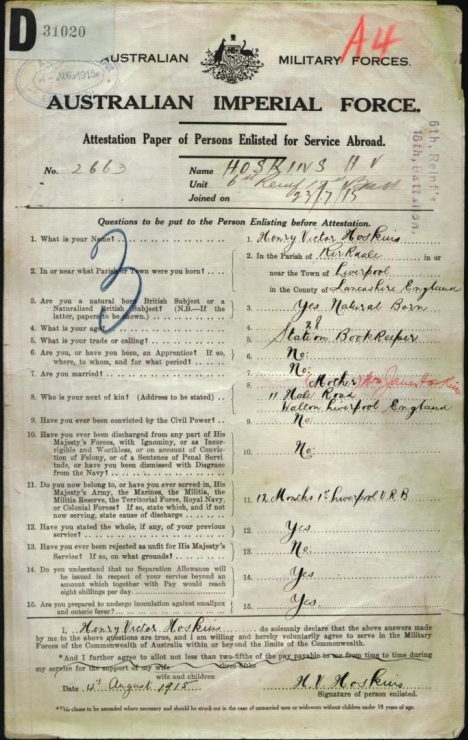 D 31020
A4
AUSTRALIAN MILITARY FORCES.
AUSTRALIAN IMPERIAL FORCE.
Attestation Paper of Persons Enlisted for Service Abroad.
6th. Reinf's
18th. Battalion.
No. 2663 Name HOSKINS H V
Unit 6th Reinf 18th Battn
Joined on 23/7/15
Questions to be put to the Person Enlisting before Attestation.
3
1. What is your Name? 1. Henry Victor Hoskins
2. In or near what Parish or Town were you born? 2. In the Parish of Kirkdale in or
near the Town of Liverpool
in the County of Lancashire England
3. Are you a natural born British Subject or a Naturalized British Subject? (N.B.—If the latter, papers to be shown.) 3. Yes Natural Born
4. What is your age? 4. 28
5. What is your trade or calling? 5. Station BookKeeper
6. Are you, or have you been, an Apprentice? If so, where, to whom, and for what period? 6. No.
7. Are you married? 7. No.
8. Who is your next of kin? (Address to be stated) 8. (Mother) Mrs Jane Hoskins
11 Hale Road
Walton Liverpool England
9. Have you ever been convicted by the Civil Power? 9. No.
10. Have you ever been discharged from any part of His Majesty's Forces, with Ignominy, or as Incorrigible and Worthless, or on account of Conviction of Felony, or of a Sentence of Penal Servitude, or have you been dismissed with Disgrace from the Navy? 10. No.
11. Do you now belong to, or have you ever served in, His Majesty's Army, the Marines, the Militia, the Militia Reserve, the Territorial Force, Royal Navy, or Colonial Forces? If so, state which, and if not now serving, state cause of discharge 11. 12 Months 1st Liverpool V.R.B
12. Have you stated the whole, if any, of your previous service? 12. Yes
13. Have you ever been rejected as unfit for His Majesty's Service? If so, on what grounds? 13. No.
14. Do you understand that no Separation Allowance will be issued in respect of your service beyond an amount which together with Pay would reach eight shillings per day 14. Yes
15. Are you prepared to undergo inoculation against smallpox and enteric fever? 15. Yes.
I, Henry Victor Hoskins do solemnly declare that the above answers made
by me to the above questions are true, and I am willing and hereby voluntarily agree to serve in the Military
Forces of the Commonwealth of Australia within or beyond the limits of the Commonwealth.
*And I further agree to allot not less than two-fifths of the pay payable to me from time to time during
three-fifths
my service for the support of my wife
wife and children
Date 4th August 1915 H. V. Hoskins
Signature of person enlisted.
*This clause to be amended where necessary and should be struck out in the case of unmarried men or widowers without children under 18 years of age.